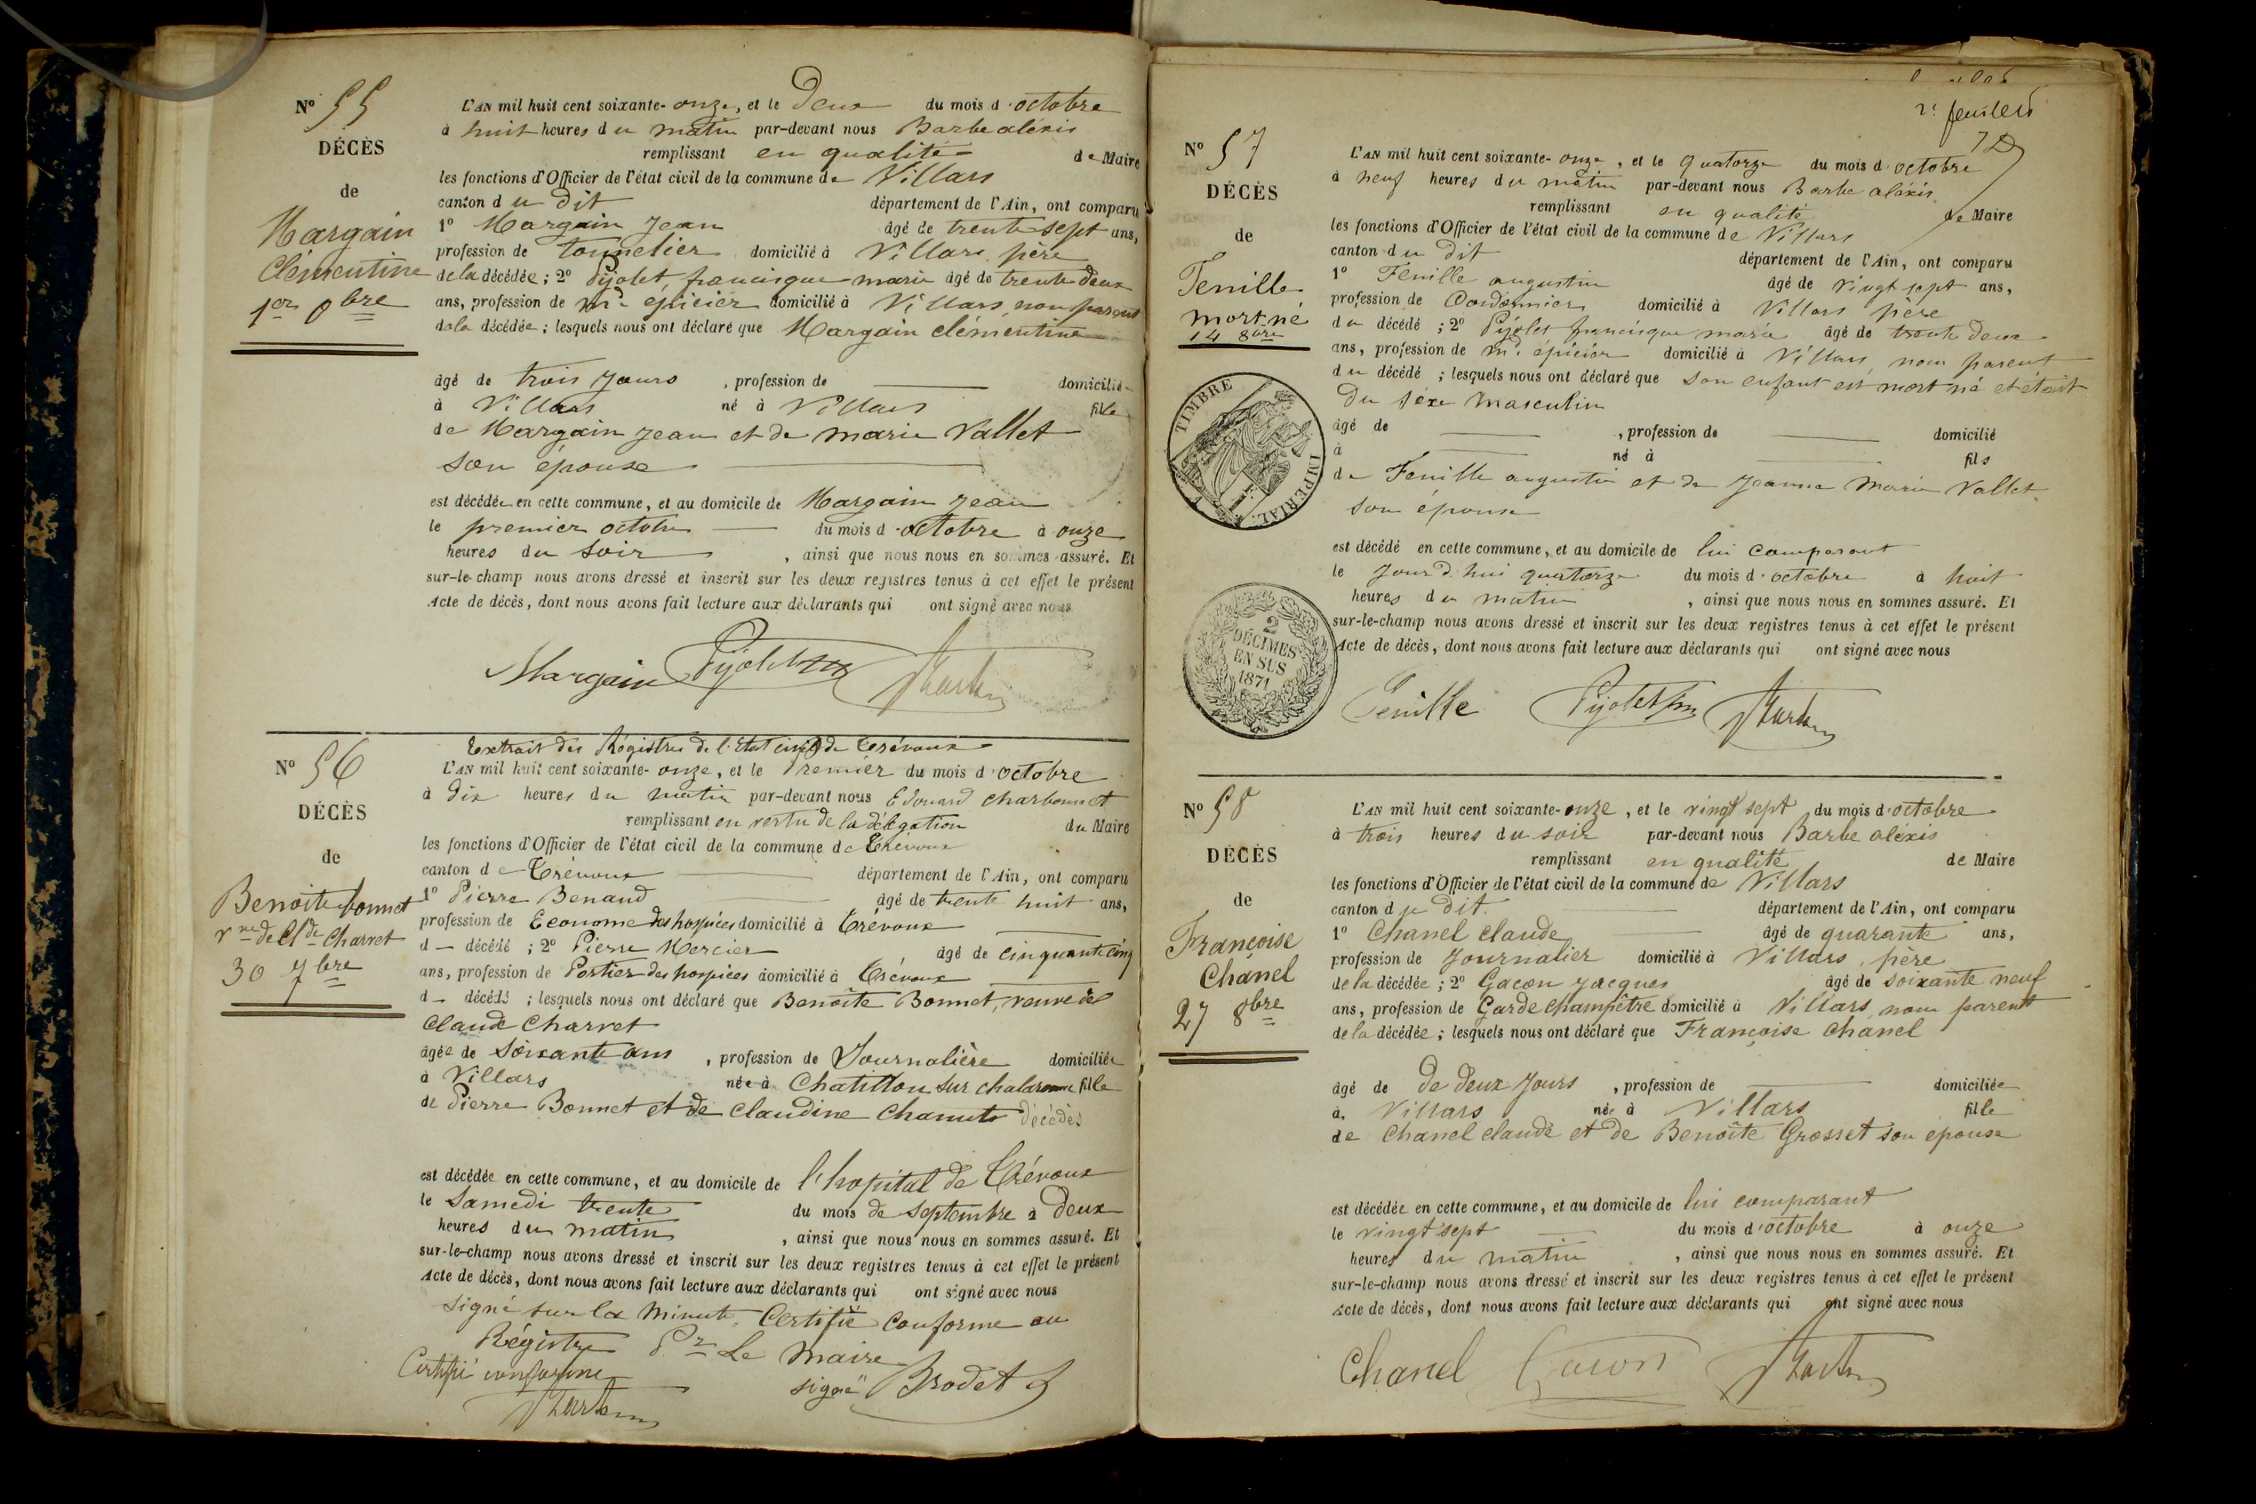 N° 55
DÉCÈS
de
Margain
Clémentine
1er 8bre
L'AN mil huit cent soixante-onze, et le Deux du mois d'octobre
à huit heures du matin par-devant nous Barbe aléxis
remplissant en qualité de Maire
les fonctions d'Officier de l'état civil de la commune de Villars
canton du dit département de l'Ain, ont comparu
1° Margain Jean âgé de trente sept ans,
profession de tonnelier domicilié à Villars, père
de la décédée ; 2° Pijolet francisque marie âgé de trente deux
ans, profession de md épicier domicilié à Villars, non parent
de la décédée ; lesquels nous ont déclaré que Margain Clémentine
âgé de trois jours , profession de domicilié
à Villars né à Villars fille
de Margain Jean et de marie Vallet
son épouse
est décédée en cette commune, et au domicile de Margain Jean
le premier octobre du mois d'octobre à onze
heures du soir , ainsi que nous nous en sommes assuré. Et
sur-le-champ nous avons dressé et inscrit sur les deux registres tenus à cet effet le présent
Acte de décès, dont nous avons fait lecture aux déclarants qui ont signé avec nous
Margain Pijolet
N° 56
DÉCÈS
de
Benoite bonnet
vve de Cde Charvet
30 7bre
Extrait des Régistres de l'état civil de Trévoux
L'AN mil huit cent soixante-onze, et le Premier du mois d'octobre
à dix heures du matin par-devant nous Edouard Charbonnet
remplissant en vertu de la délégation du Maire
les fonctions d'Officier de l'état civil de la commune de Trévoux
canton de Trévoux département de l'Ain, ont comparu
1° Pierre Benaud âgé de trente huit ans,
profession de Econome des hospices domicilié à Trévoux
d décédé ; 2° Pierre Mercier âgé de cinquante cinq
ans, profession de Portier des hospices domicilié à Trévoux
d décédé ; lesquels nous ont déclaré que Benoîte Bonnet, veuve de
Claude Charvet
âgée de soixante ans , profession de Journalière domiciliée
à Villars née à Chatillon sur chalaronne fille
de Pierre Bonnet et de Claudine Chanut décédés
est décédée en cette commune, et au domicile de l'hopital de Trévoux
le samedi trente du mois de septembre à Deux
heures du matin , ainsi que nous nous en sommes assuré. Et
sur-le-champ nous avons dressé et inscrit sur les deux registres tenus à cet effet le présent
Acte de décès, dont nous avons fait lecture aux déclarants qui ont signé avec nous
signé sur la minute. Certifié conforme au
Régistre Pr Le Maire
Certifié conforme signé Brodet
2e feuillets
N° 57
DÉCÈS
de
Fenille
mort né
14 8bre
TIMBRE IMPERIAL
2 DÉCIMES EN SUS 1871
L'AN mil huit cent soixante-onze, et le quatorze du mois d'octobre
à neuf heures du matin par-devant nous Barbe aléxis
remplissant en qualité de Maire
les fonctions d'Officier de l'état civil de la commune de Villars
canton du dit département de l'Ain, ont comparu
1° Fenille augustin âgé de vingt sept ans,
profession de Cordonnier domicilié à Villars père
du décédé ; 2° Pijolet francisque marie âgé de trente deux
ans, profession de md épicier domicilié à Villars, non parent
du décédé ; lesquels nous ont déclaré que son enfant est mort né et était
du séxe masculin
âgé de , profession de domicilié
à né à fils
de Fenille augustin et de Jeanne Marie Vallet
son épouse
est décédé en cette commune, et au domicile de lui comparant
le jourd'hui quatorze du mois d'octobre à huit
heures du matin , ainsi que nous nous en sommes assuré. Et
sur-le-champ nous avons dressé et inscrit sur les deux registres tenus à cet effet le présent
Acte de décès, dont nous avons fait lecture aux déclarants qui ont signé avec nous
Fenille Pijolet
N° 58
DÉCÈS
de
Françoise
Chanel
27 8bre
L'AN mil huit cent soixante-onze, et le vingt sept du mois d'octobre
à trois heures du soir par-devant nous Barbe aléxis
remplissant en qualité de Maire
les fonctions d'Officier de l'état civil de la commune de Villars
canton du dit département de l'Ain, ont comparu
1° Chanel Claude âgé de quarante ans,
profession de Journalier domicilié à Villars, père
de la décédée ; 2° Gacon Jacques âgé de soixante neuf
ans, profession de Garde champêtre domicilié à Villars, non parent
de la décédée ; lesquels nous ont déclaré que Françoise Chanel
âgé de de deux jours , profession de domiciliée
à Villars née à Villars fille
de Chanel Claude et de Benoîte Grosset son épouse
est décédée en cette commune, et au domicile de lui comparant
le vingt sept du mois d'octobre à onze
heures du matin , ainsi que nous nous en sommes assuré. Et
sur-le-champ nous avons dressé et inscrit sur les deux registres tenus à cet effet le présent
Acte de décès, dont nous avons fait lecture aux déclarants qui ont signé avec nous
Chanel Gacon